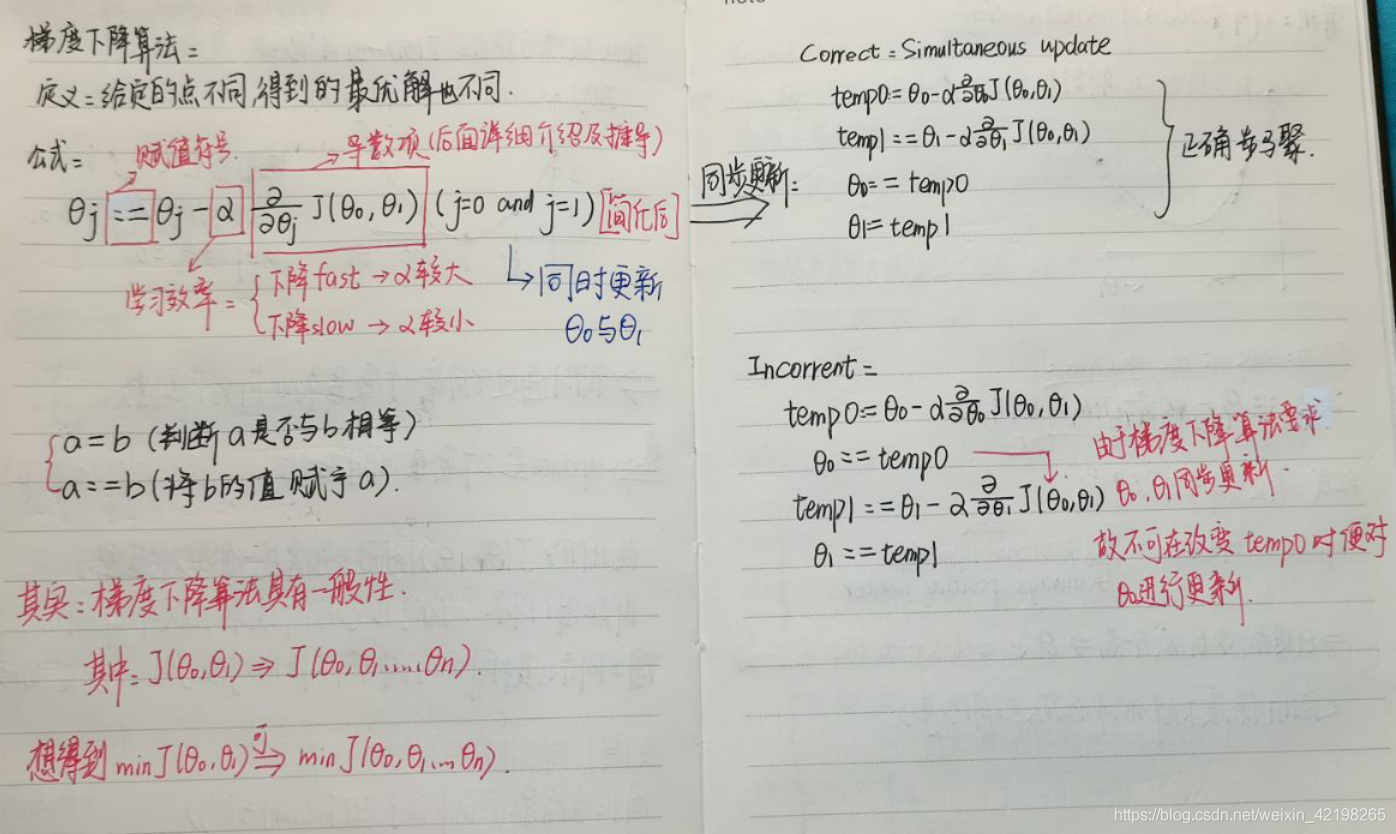 梯度下降算法:
定义:给定的点不同,得到的最优解也不同.
公式:
赋值符号
导数项(后面详细介绍及推导)
θj := θj - α ∂/∂θj J(θ0,θ1) (j=0 and j=1) [简化后]
学习效率:
{下降fast → α较大
下降slow → α较小
同时更新
θ0与θ1
{a=b (判断a是否与b相等)
a:=b (将b的值赋予a).
其实:梯度下降算法具有一般性.
其中:J(θ0,θ1) ⇒ J(θ0,θ1....,θn).
想得到 min J(θ0,θ1) ⇒ min J(θ0,θ1...θn).
同步更新:
Correct: Simultaneous update
temp0:= θ0-α ∂/∂θ0 J(θ0,θ1)
temp1:= θ1-α ∂/∂θ1 J(θ0,θ1)
θ0:= temp0
θ1:= temp1
正确步骤.
Incorrent:
temp0:= θ0-α ∂/∂θ0 J(θ0,θ1)
θ0:= temp0
temp1:= θ1-α ∂/∂θ1 J(θ0,θ1)
θ1:= temp1
由于梯度下降算法要求
θ0,θ1同步更新.
故不可在改变temp0时便对
θ0进行更新.
https://blog.csdn.net/weixin_42198265